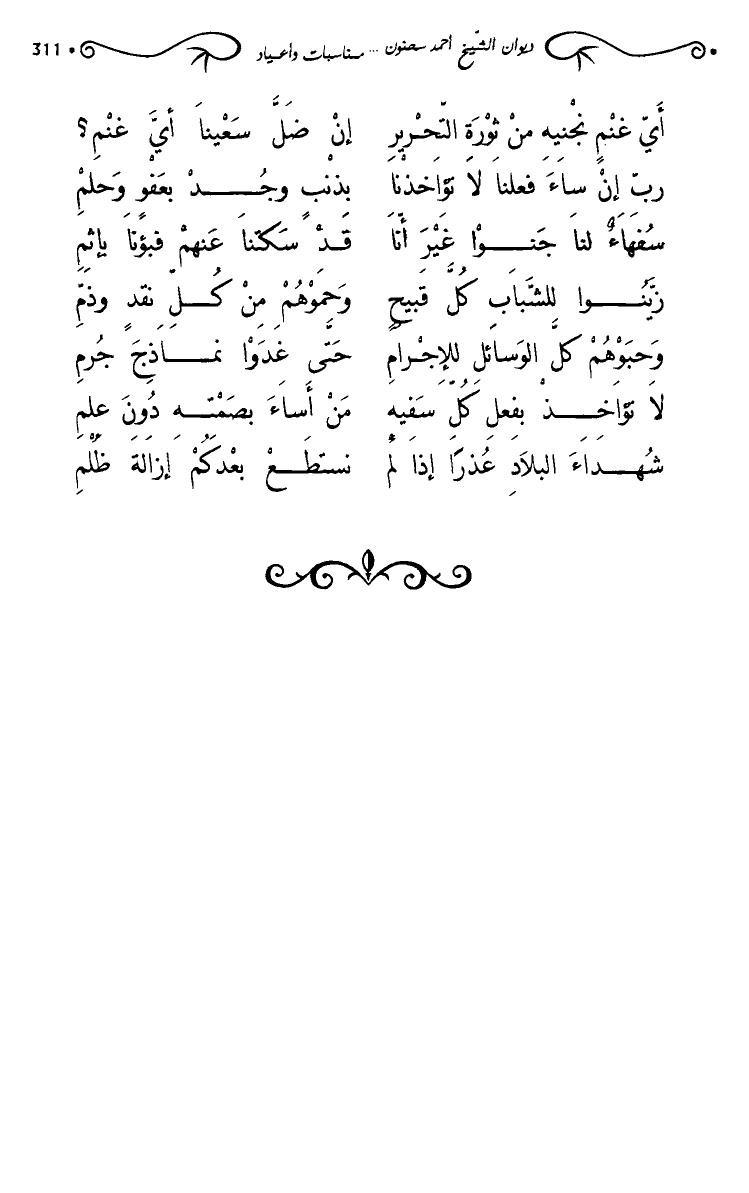 ديوان الشّيخ أحمد سحنون ... مناسبات وأعياد • 311
أَيّ غنْمٍ نجْنيه منْ ثوْرَةِ التّحْريرِ إنْ ضَلَّ سَعْيناَ أيَّ غنْمِ؟
ربّ إنْ ساءَ فعلناَ لاَ تؤاخذْناَ بذنْبٍ وجُـــدْ بعَفْوٍ وَحلمْ
سُفهَاءٌ لناَ جَنـــوْا غَيْرَ أنّا قَـدْ سَكتناَ عَنهمْ فبؤْناَ بإثمِ
زيَّنُـــوا للشَّبابِ كلَّ قبيحٍ وَحَموْهُمْ منْ كُـــلّ نقدٍ وذمِّ
وَحبَوْهُمْ كلَّ الوَسائلِ للإجْرامِ حَتَّى غَدَوْا نمـــاذجَ جُرمِ
لاَ تؤاخـــذْ بفعلِ كُلّ سَفيهٍ مَنْ أساءَ بصَمْتـــهِ دُونَ علمِ
شُهـــداءَ البلاَدِ عُذرًا إذا لَمْ نستطـــعْ بعْدكُمْ إزالةَ ظُلْمِ